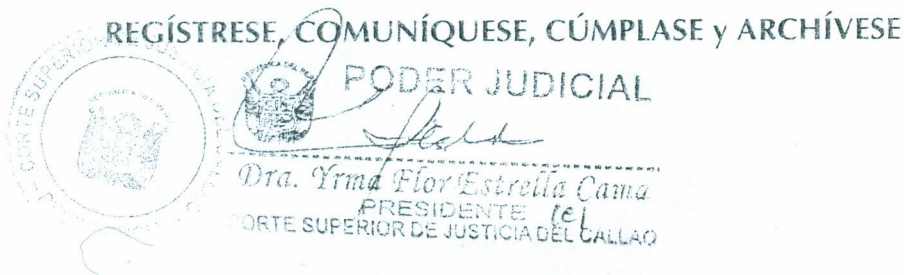 REGÍSTRESE, COMUNÍQUESE, CÚMPLASE y ARCHÍVESE
PODER JUDICIAL
Dra. Yrma Flor Estrella Cama
PRESIDENTE (e)
CORTE SUPERIOR DE JUSTICIA DEL CALLAO
CORTE SUPERIOR DE JUSTICIA